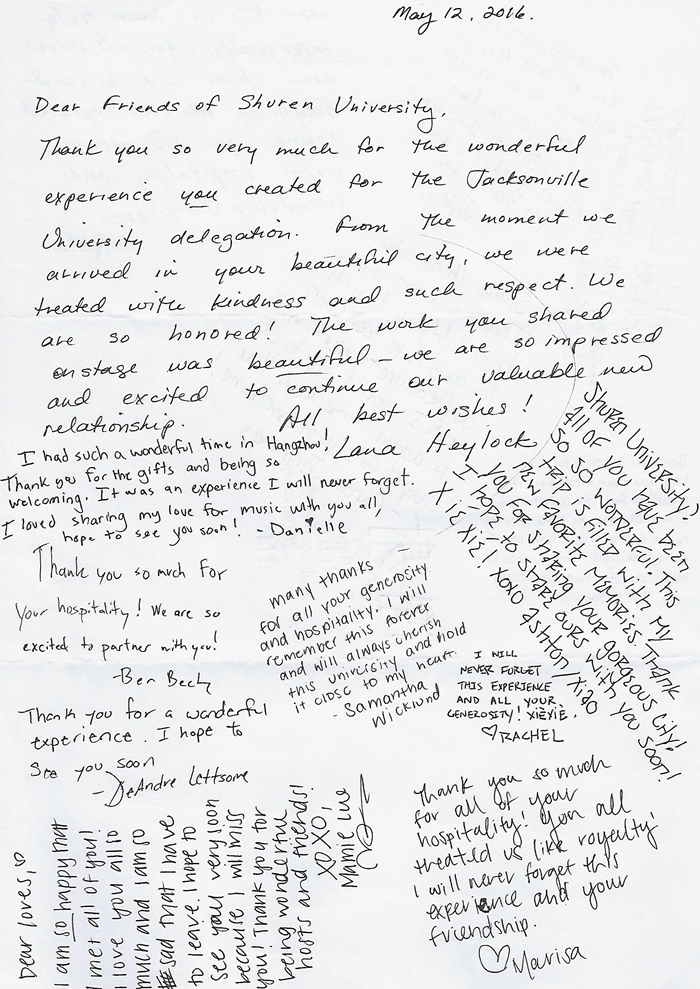 May 12, 2016.
Dear Friends of Shuren University,
Thank you so very much for the wonderful
experience you created for the Jacksonville
University delegation. From the moment we
arrived in your beautiful city, we were
treated with kindness and such respect. We
are so honored! The work you shared
onstage was beautiful – we are so impressed
and excited to continue our valuable new
relationship.
All best wishes!
Lana Heylock
I had such a wonderful time in Hangzhou!
Thank you for the gifts and being so
welcoming. It was an experience I will never forget.
I loved sharing my love for music with you all,
hope to see you soon! - Danielle
Shuren University!
All of you have been
so so wonderful. This
trip is filled with my
new favorite memories. Thank
you for sharing your gorgeous city!
I hope to share ours with you soon!
Xièxiè! xoxo Ashton/Xiao
Thank you so much for
your hospitality! We are so
excited to partner with you!
-Ben Bech
many thanks –
for all your generosity
and hospitality. I will
remember this forever
and will always cherish
this university and hold
it close to my heart.
- Samantha
Wicklund
I WILL
NEVER FORGET
THIS EXPERIENCE
AND ALL YOUR
GENEROSITY! XIÈXIÈ.
♡RACHEL
Thank you for a wonderful
experience. I hope to
see you soon
- DeAndre Lettsome
Dear loves, ♡
I am so happy that
I met all of you!
I love you all so
much and I am so
sad that I have
to leave. I hope to
see you very soon
because I will miss
you! Thank you for
being wonderful
hosts and friends!
XOXO,
Mamie Lue
Thank you so much
for all of your
hospitality! You all
treated us like royalty!
I will never forget this
experience and your
friendship.
♡Marisa